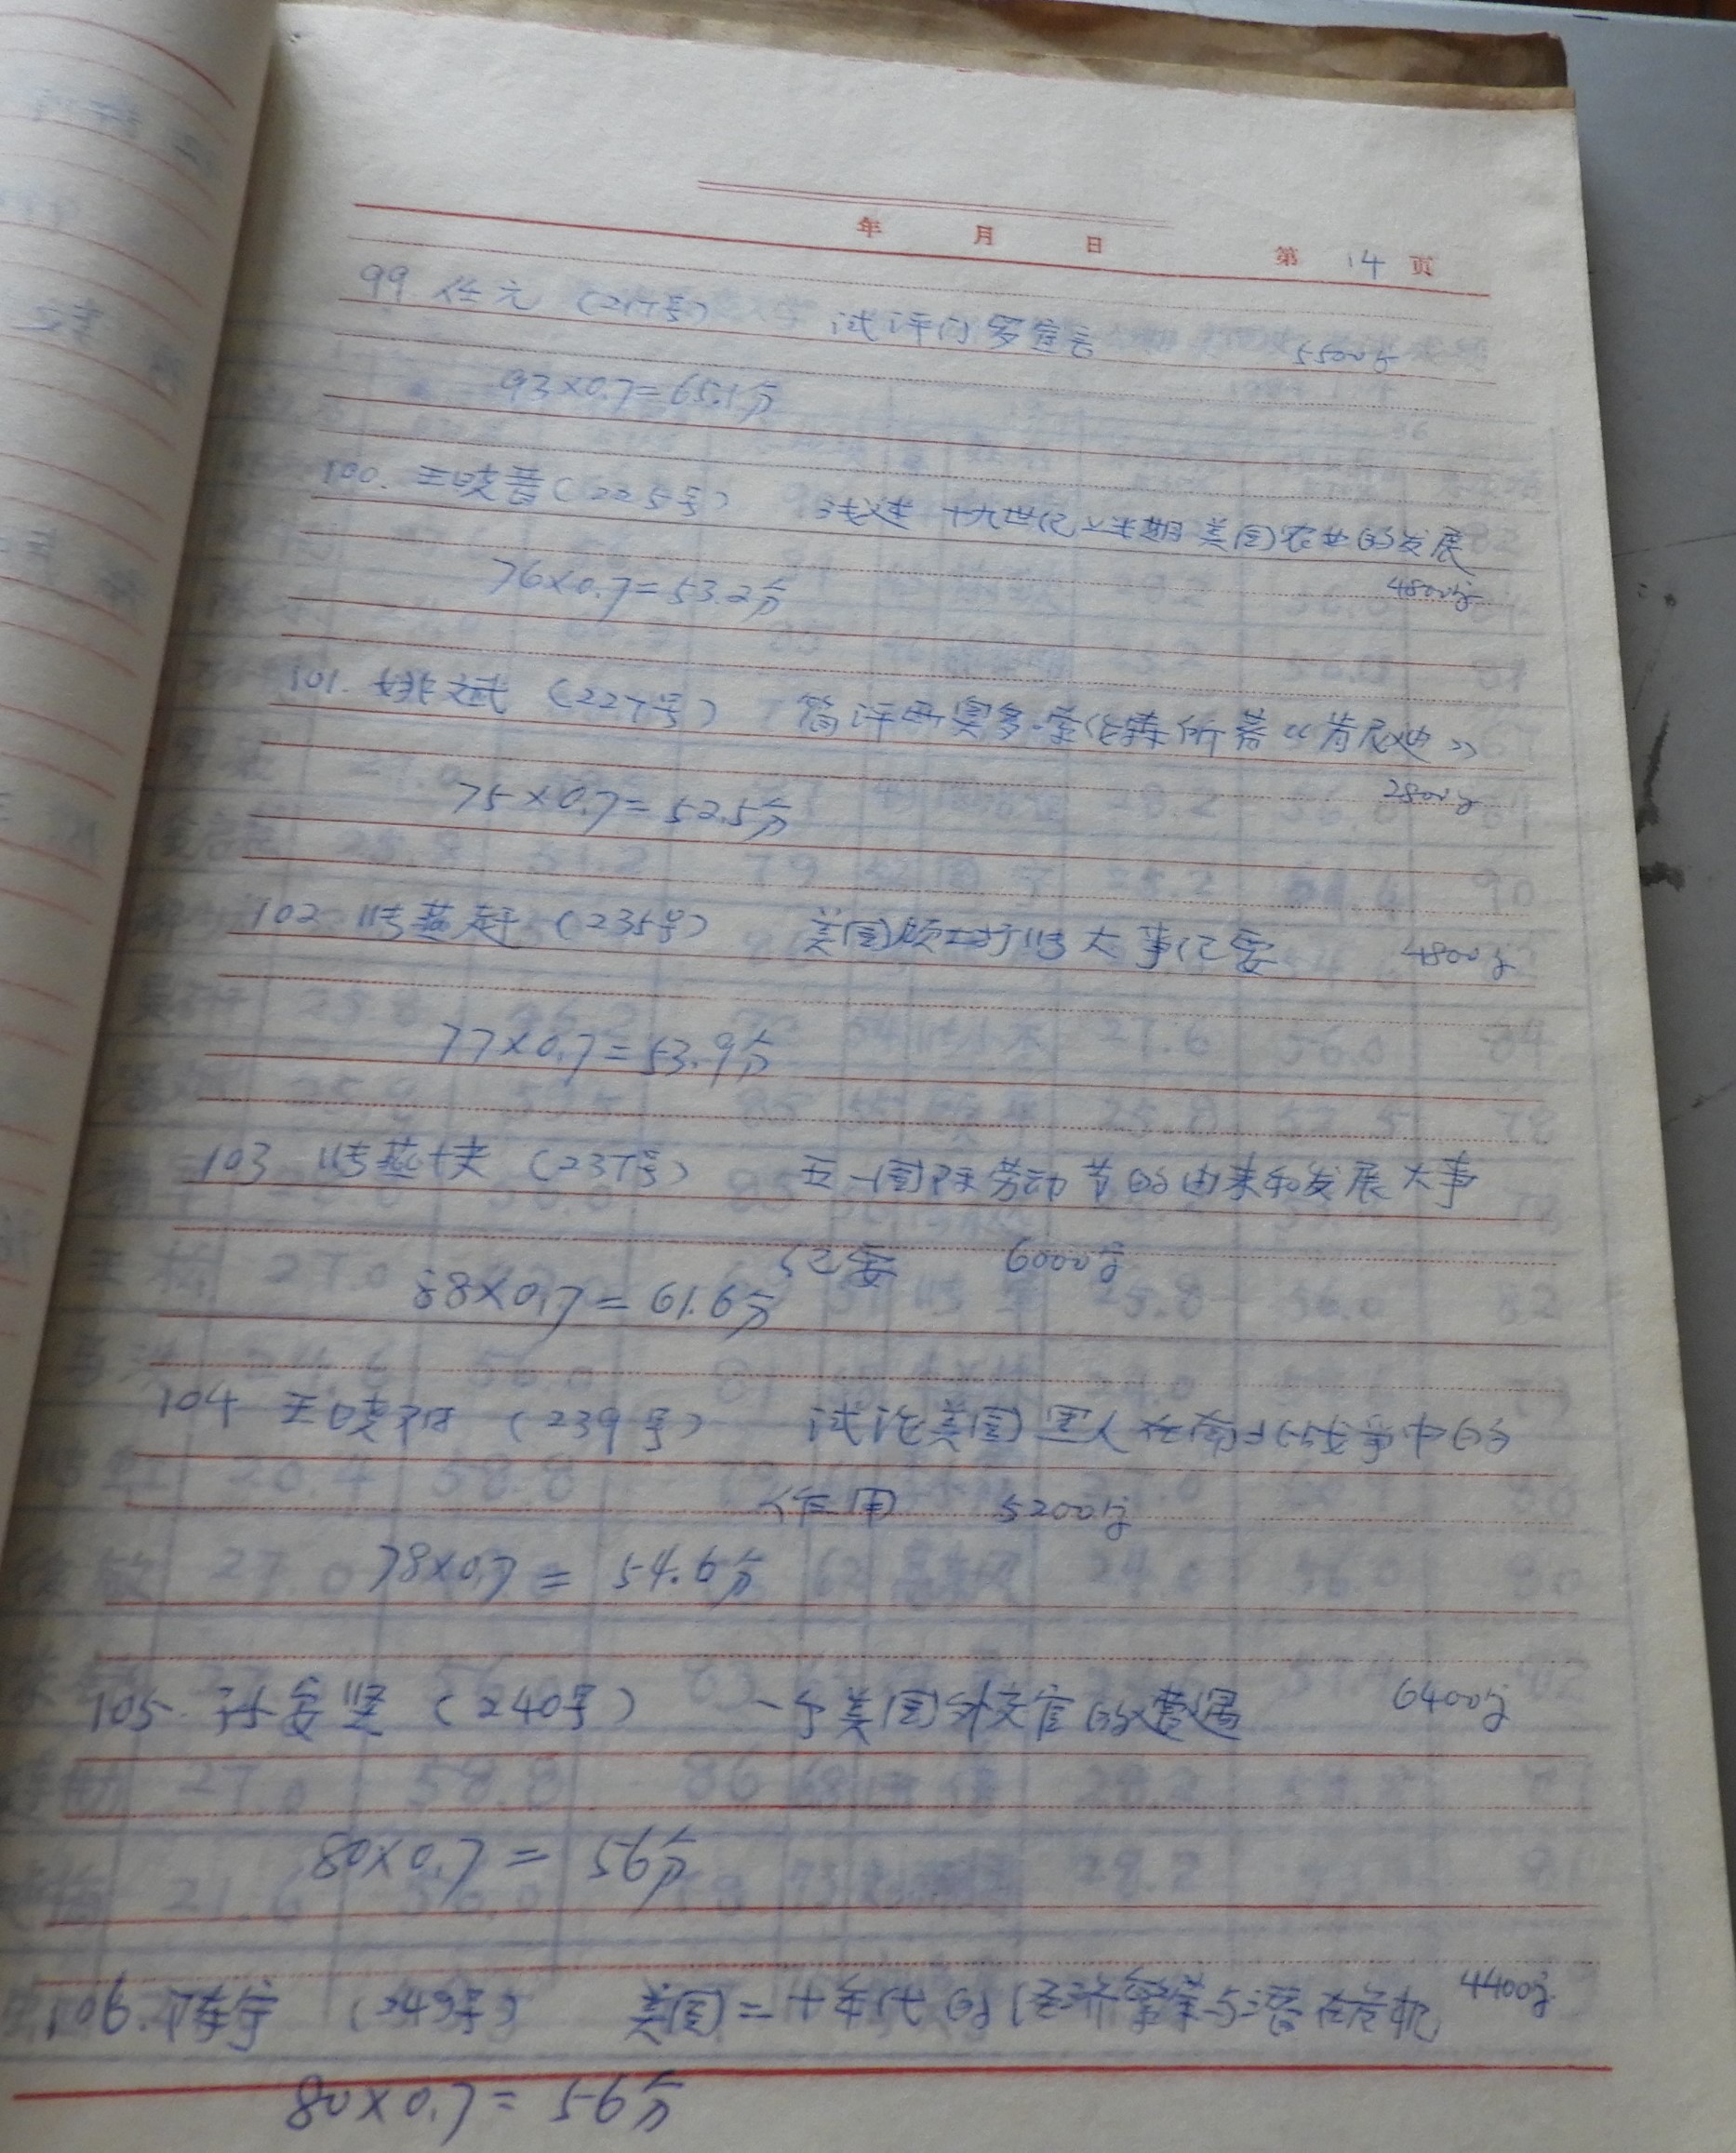 年 月 日 第 14 页
99 任元 (217号) 试评门罗宣言 5500字
93×0.7=65.1分
100. 王晓音(225号) 浅述十九世纪上半期美国农业的发展
76×0.7=53.2分 4800字
101. 姚斌 (227号) 简评西奥多·索伦森所著“肯尼迪”
75×0.7=52.5分 2800字
102 燕 (235号) 美国 大事记要 4800字
77×0.7=53.9分
103 燕 (237号) 五一国际劳动节的由来和发展大事
记要 6000字
88×0.7=61.6分
104 王晓 (239号) 试论美国黑人在南北战争中的
作用 5200字
78×0.7= 54.6分
105. 孙 坚 (240号) 一个美国外交官的遭遇 6400字
80×0.7= 56分
106. 陈宇 (249号) 美国二十年代的经济繁荣与潜在危机 4400字
80×0.7= 56分